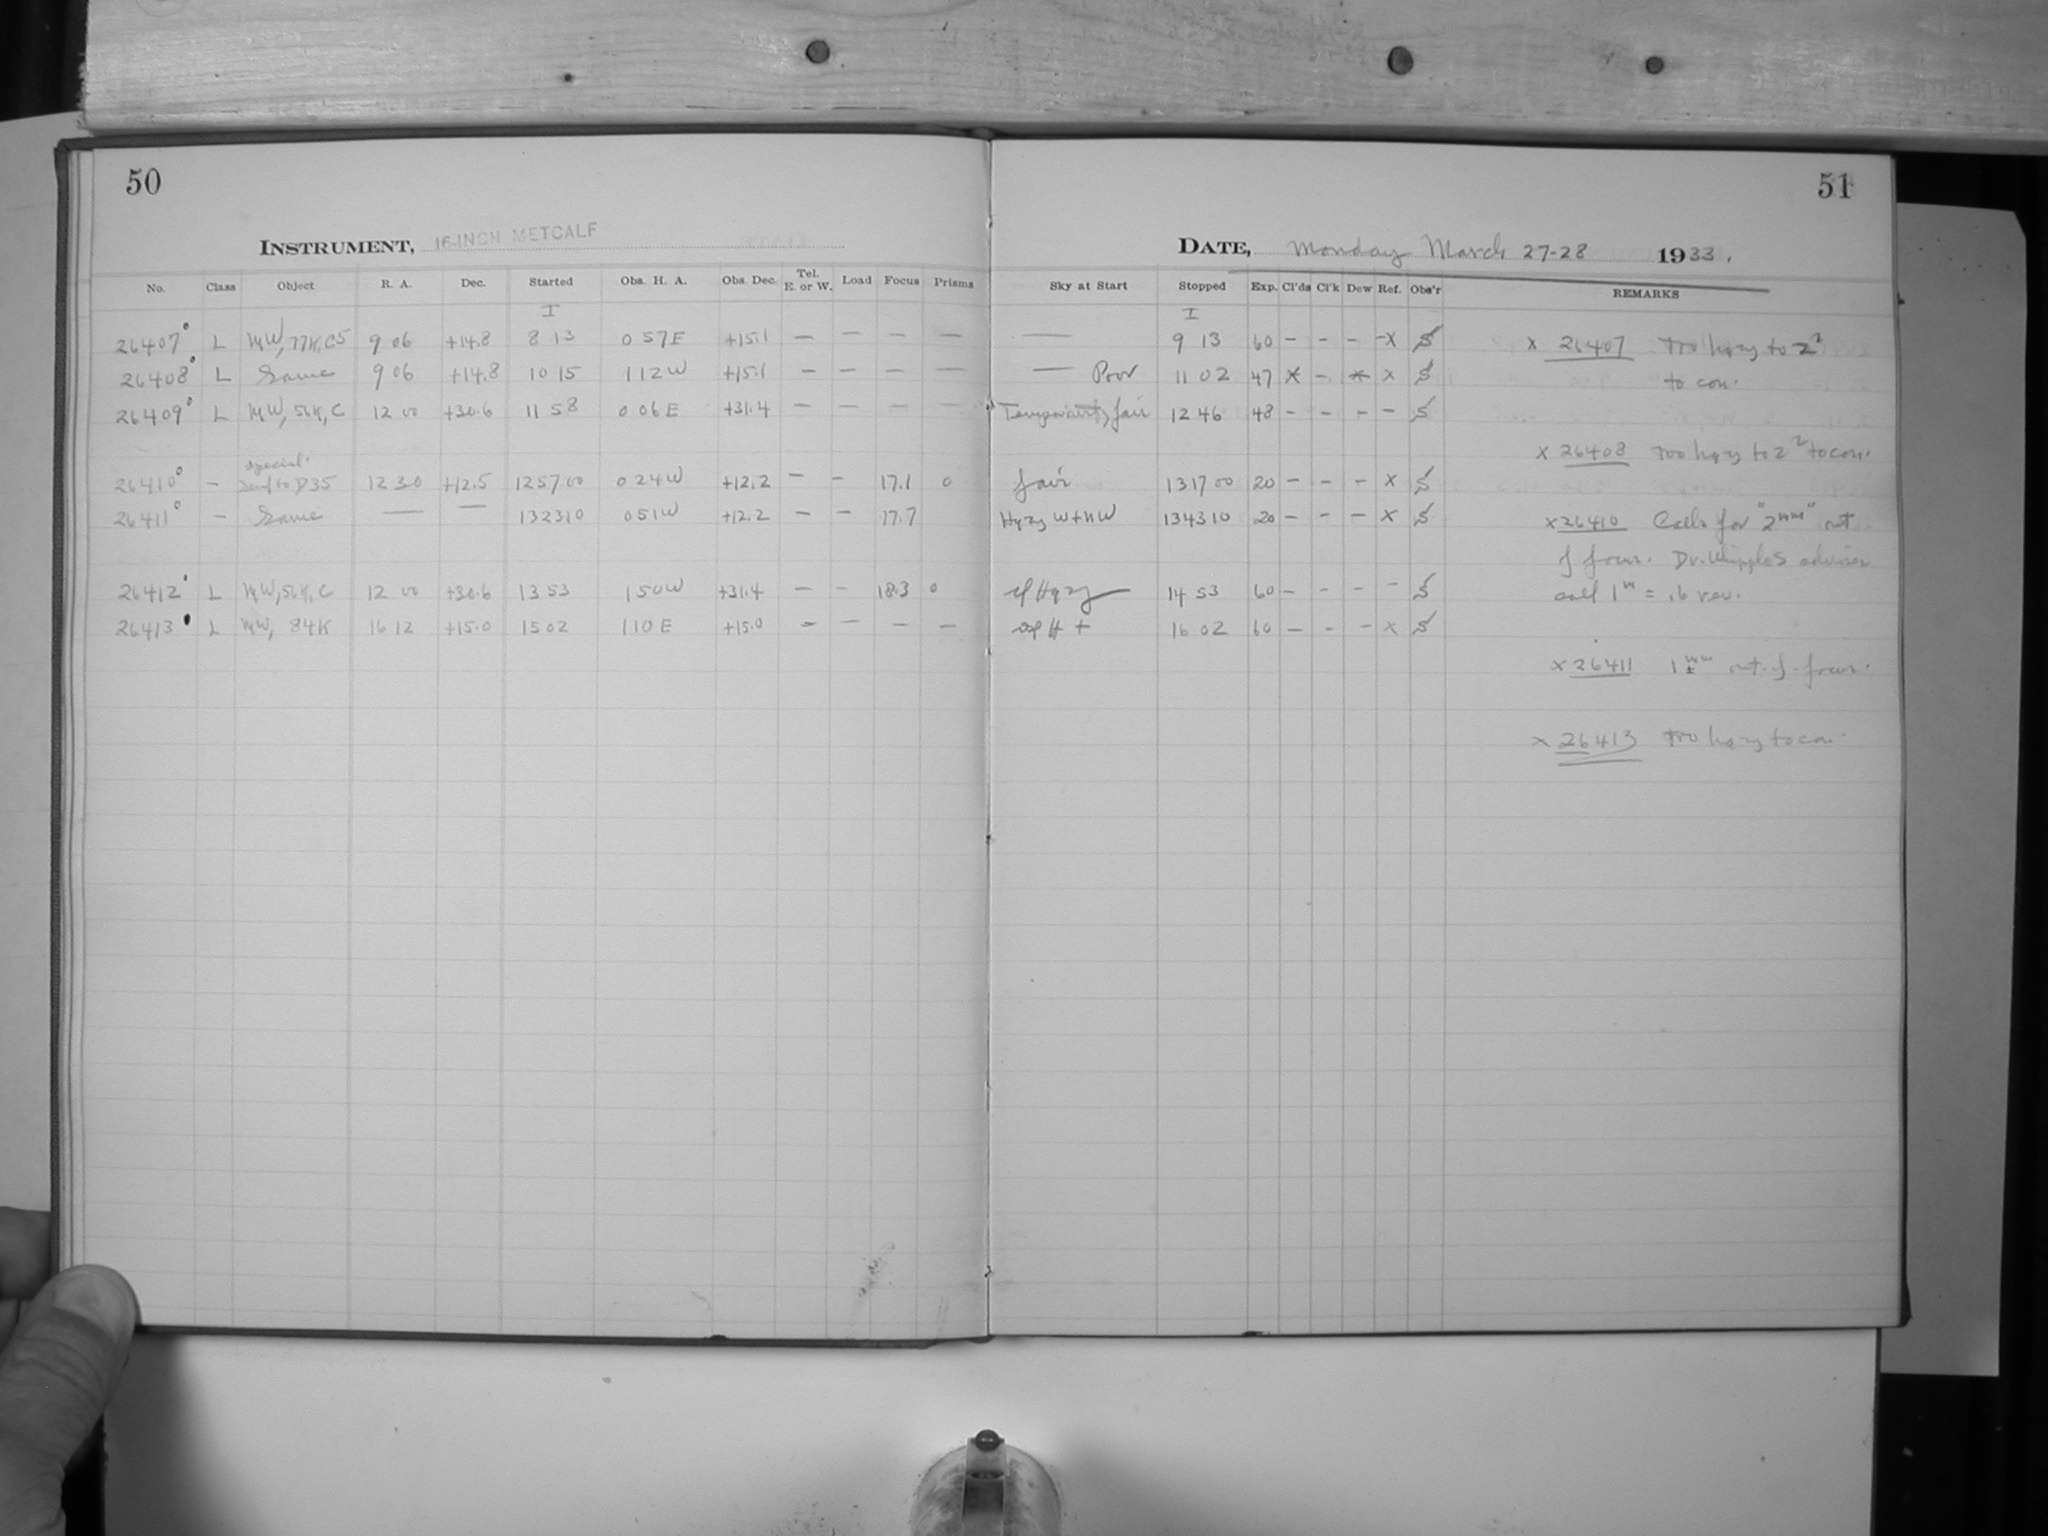 50
INSTRUMENT, 16-INCH METCALF
No. Class Object R. A. Dec. Started Obs. H. A. Obs. Dec. Tel. E. or W. Load Focus Prisms
I
26407° L MW, 77K, C5 9 06 +14.8 8 13 0 57 E +15.1 — — — —
26408° L Same 9 06 +14.8 10 15 1 12 W +15.1 — — — —
26409° L MW, 56K, C 12 00 +30.6 11 58 0 06 E +31.4 — — — —
special
26410° — to D35 12 30 +12.5 12 57 00 0 24 W +12.2 — — 17.1 0
26411° — Same — — 13 23 10 0 51 W +12.2 — — 17.7
26412° L MW, 56K, C 12 00 +30.6 13 53 1 50 W +31.4 — — 18.3 0
26413 L MW, 84K 16 12 +15.0 15 02 1 10 E +15.0 — — — —
51
DATE, Monday March 27-28 1933.
Sky at Start Stopped Exp. Cl'ds Cl'k Dew Ref. Obs'r REMARKS
I
— 9 13 60 — — — -x S x 26407 Too hazy to 2²
— Poor 11 02 47 x — x x S to con.
Temporarily fair 12 46 48 — — — — S
x 26408 Too hazy to 2² to con.
fair 13 17 00 20 — — — x S
Hazy W+NW 13 43 10 20 — — — x S x 26410 Calls for "2mm" out
of focus. Dr. Whipple's advise
Hazy 14 53 60 — — — — S call 1m = .6 rev.
H + 16 02 60 — — — x S
x 26411 1 mm out-of-focus.
x 26413 Too hazy to con.